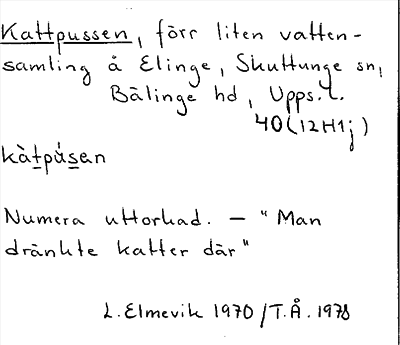 Kattpussen, förr liten vatten-
samling å Elinge, Skuttunge sn,
Bälinge hd, Upps.l.
40(12H1j)
kàtpúsen
Numera uttorkad. – "Man
dränkte katter där"
L. Elmevik 1970/T.Å. 1978